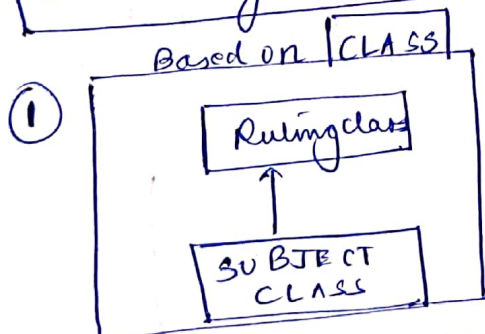 Based on CLASS
1
Ruling class
SUBJECT
CLASS